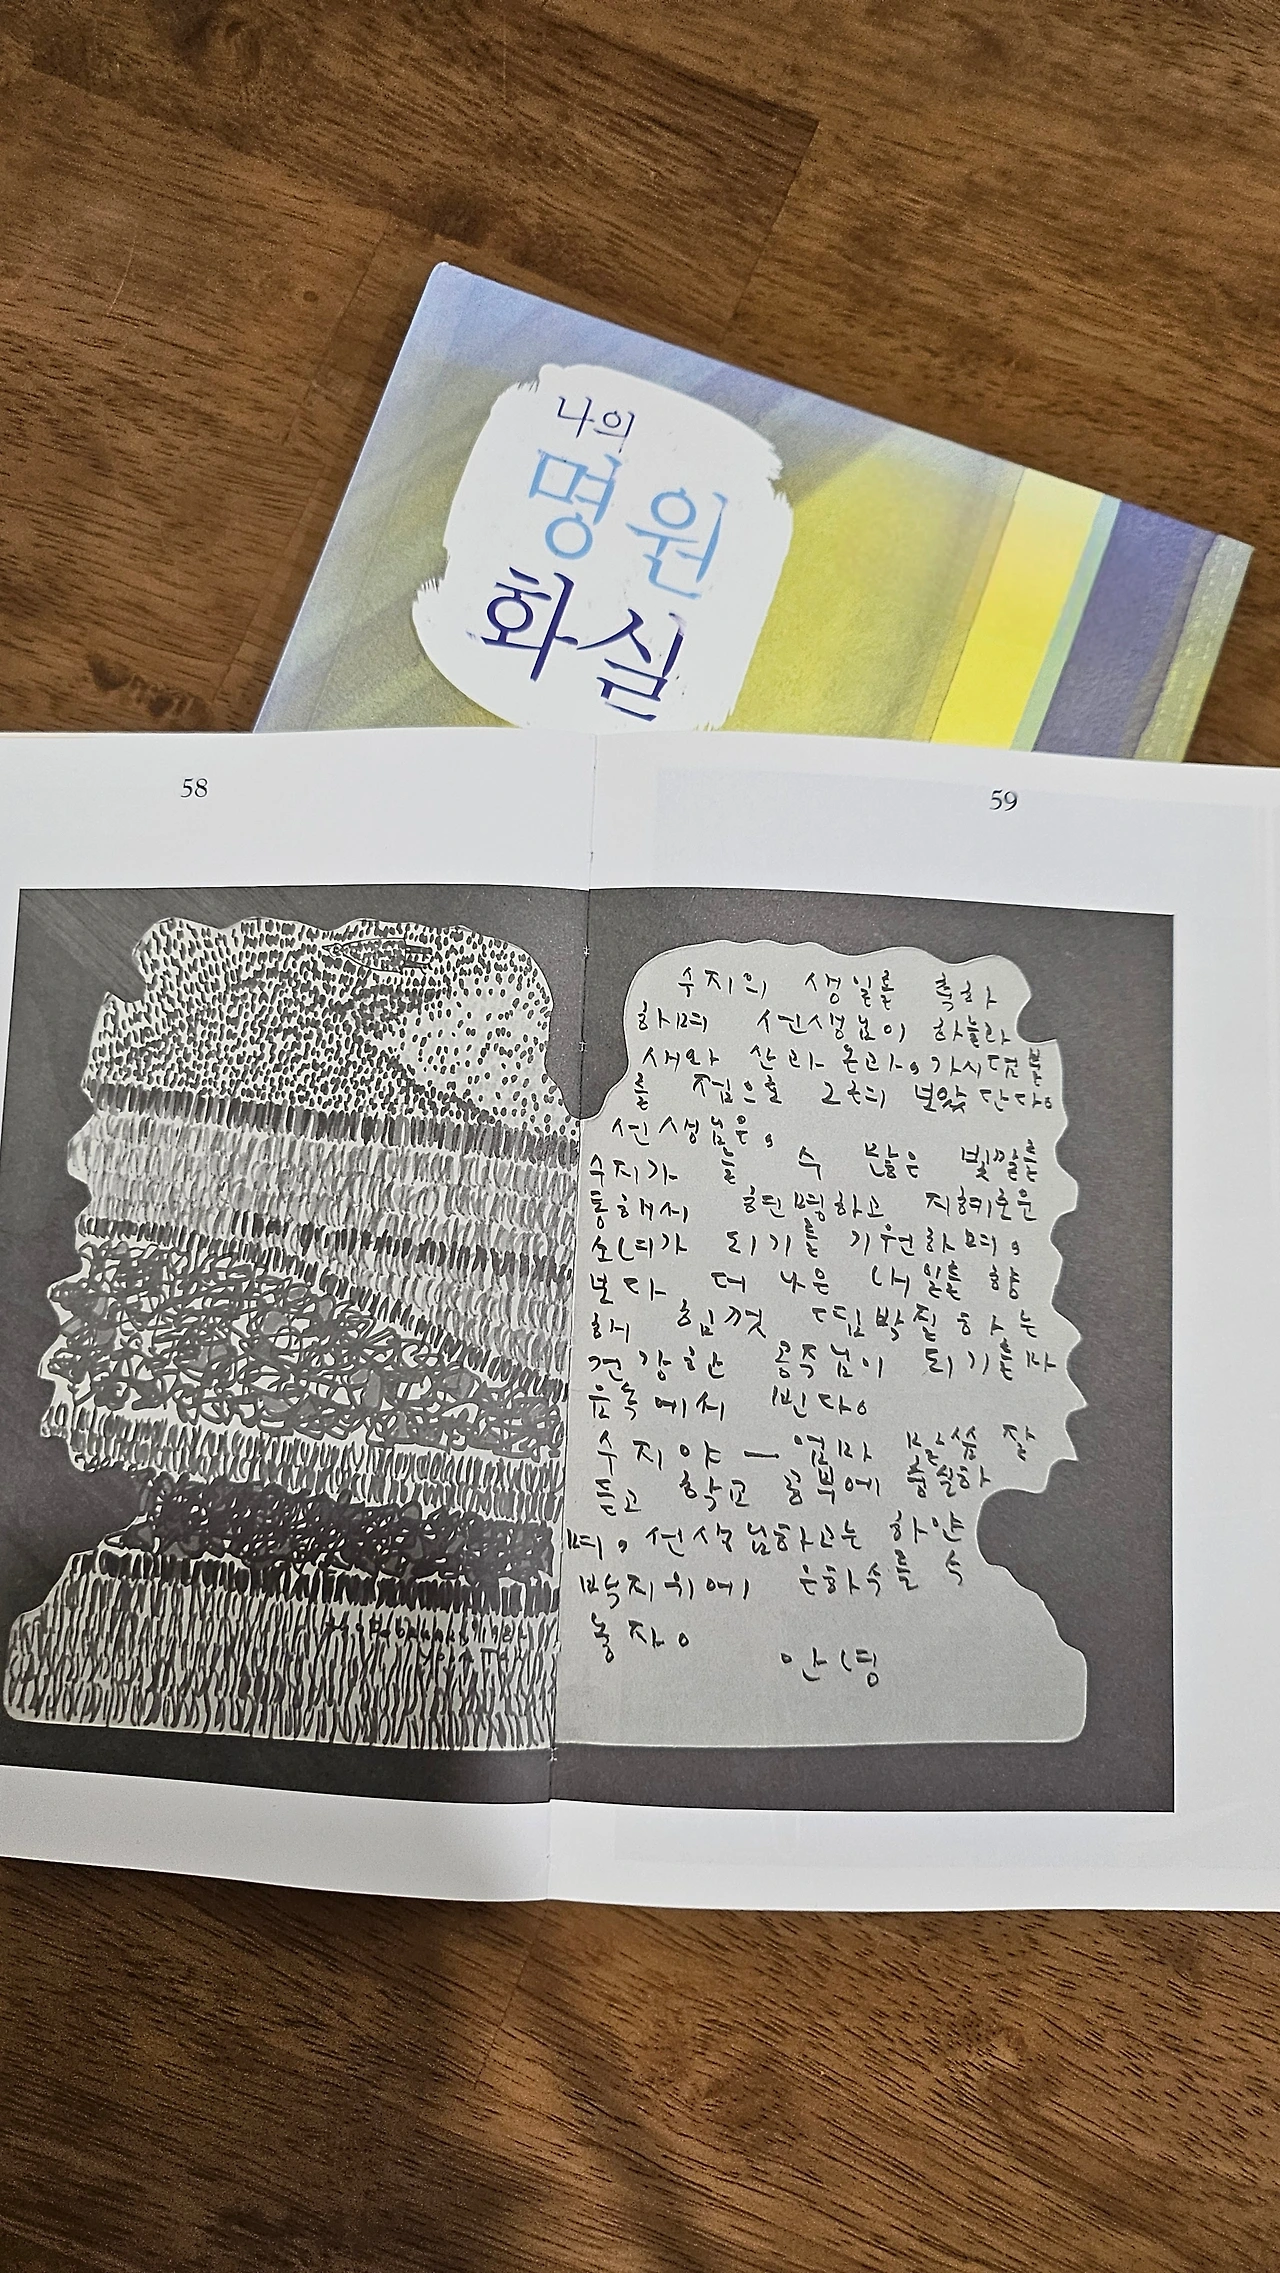 나의
명원
화실
58
59
수지의 생일을 축하
하며 선생님이 하늘과
새와 산과 논과, 가시덤불
을 점으로 보았단다.
선생님은,
수지가 늘 수 많은 빛깔을
통해서 현명하고 지혜로운
소녀가 되기를 기원하며,
보다 더 나은 내일을 향
해 힘껏 뜀박질하는
건강한 공주님이 되기를 마
음속에서 빈다.
수지야 — 엄마 말씀 잘
듣고 학교 공부에 충실하
며, 선생님하고는 하얀
백지위에 은하수를 수
놓자.
안녕